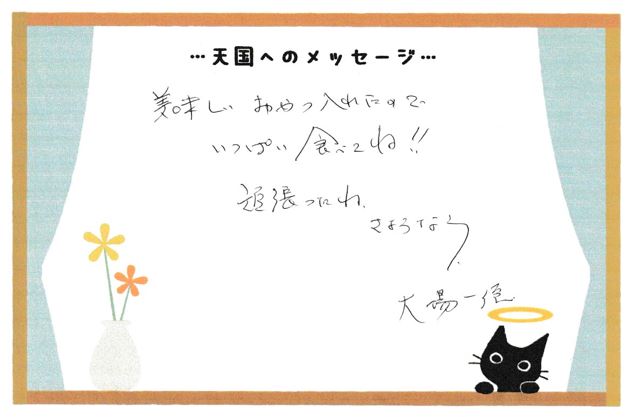 …天国へのメッセージ…
美味しいおやつ入れたので
いっぱい食べてね!!
頑張ったね。
さようなら。
大場一